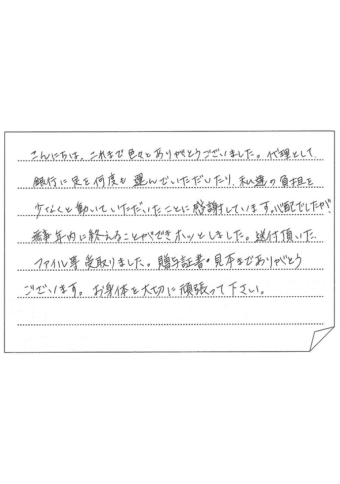 こんにちは。これまで色々とありがとうございました。代理として
銀行に足を何度も運んでいただいたり、私達の負担を
少なくと動いていただいたことに感謝しています。心配でしたが、
無事年内に終えることができホッとしました。送付頂いた
ファイル等受取りました。贈与証書・見本までありがとう
ございます。お身体を大切に頑張って下さい。